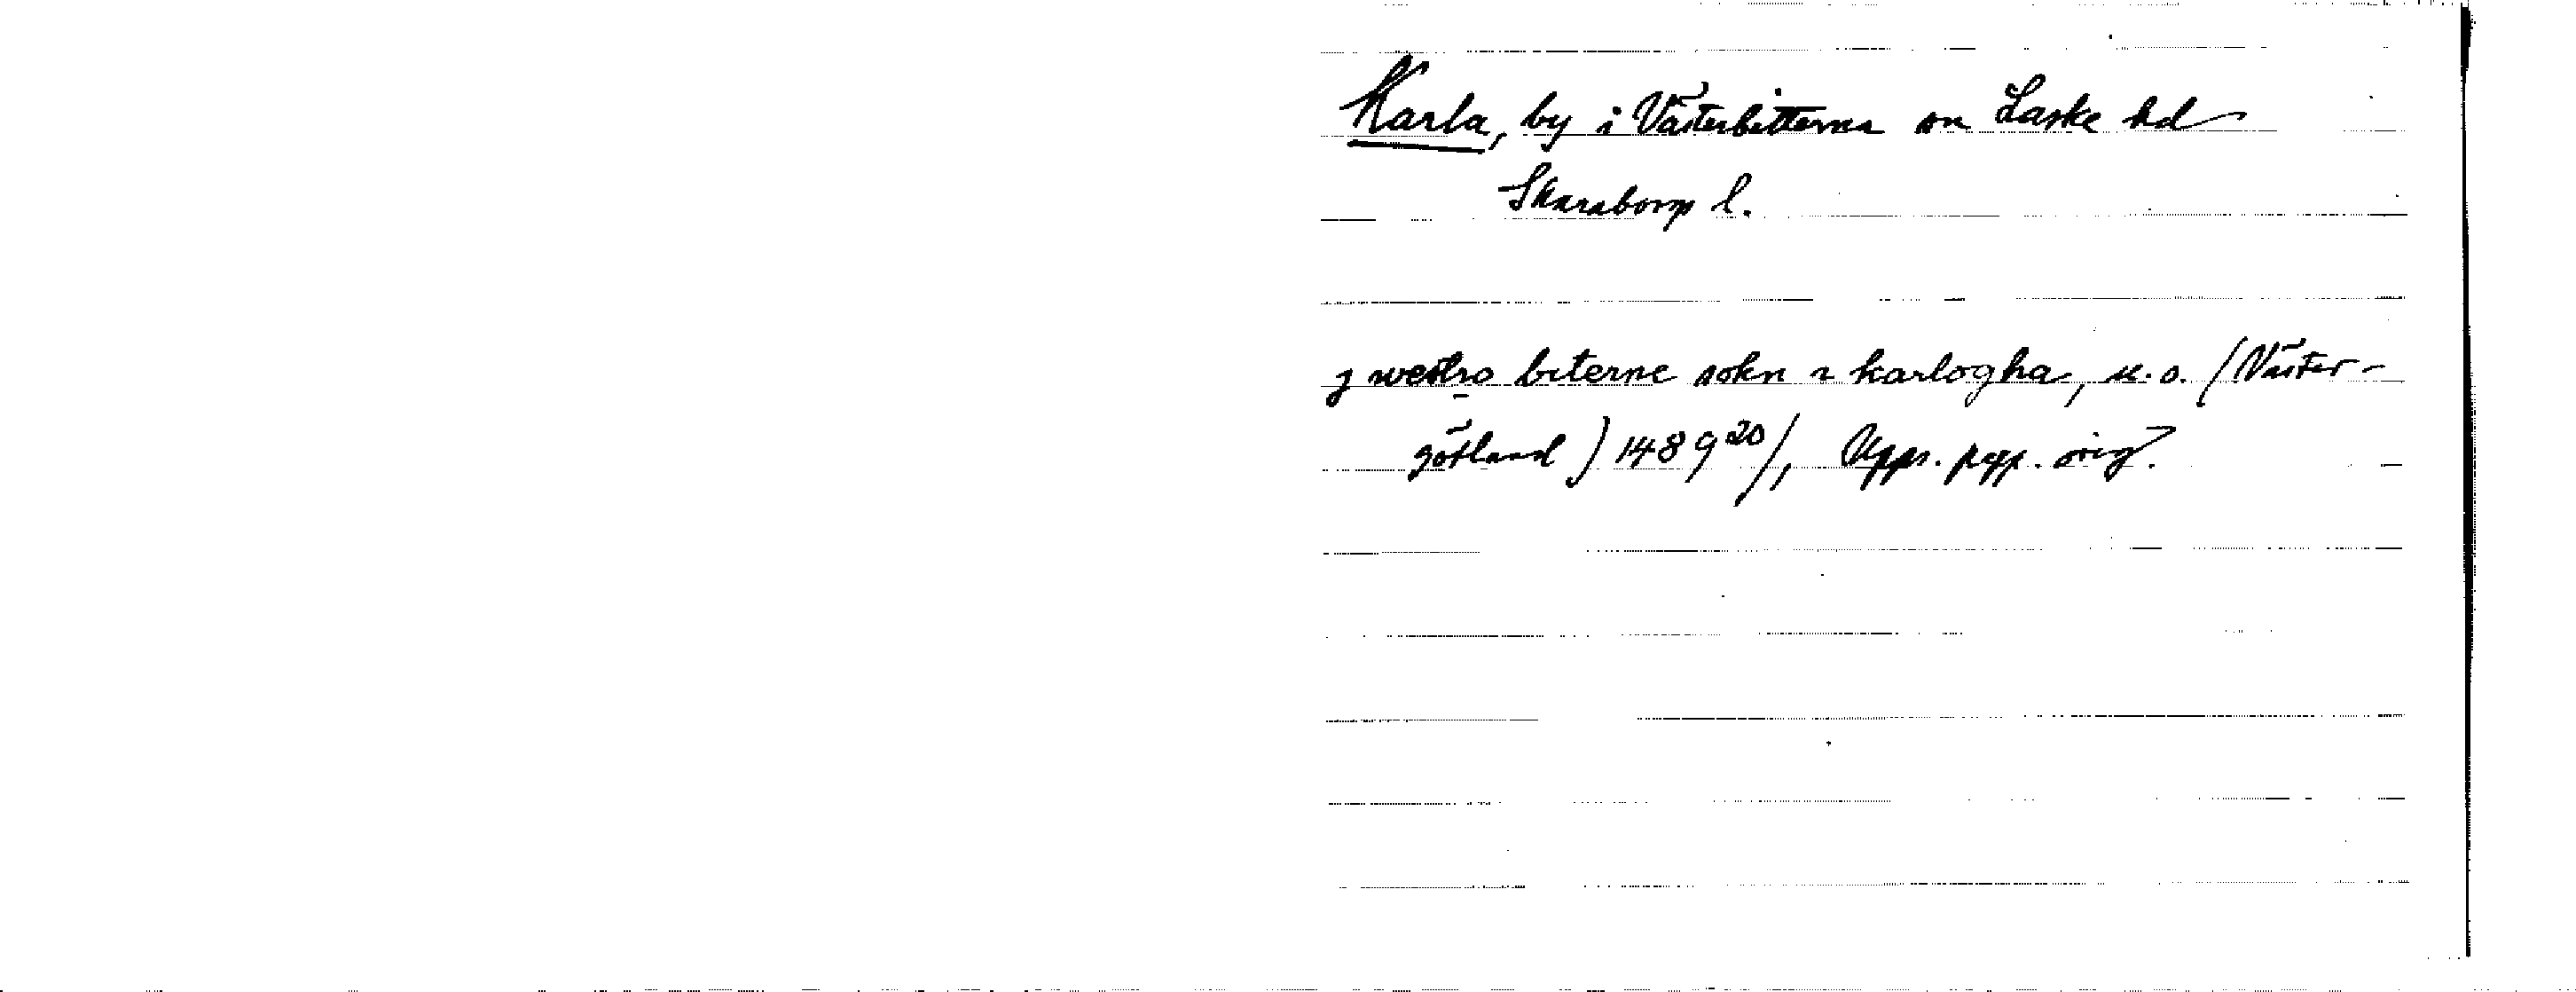 Karla, by i Västerbitterna sn Laske hd
Skaraborgs l.
j westro biterne sokn i karlogha, u.o. (Väster-
götland) 1489 20/1, Upps. papp. orig.